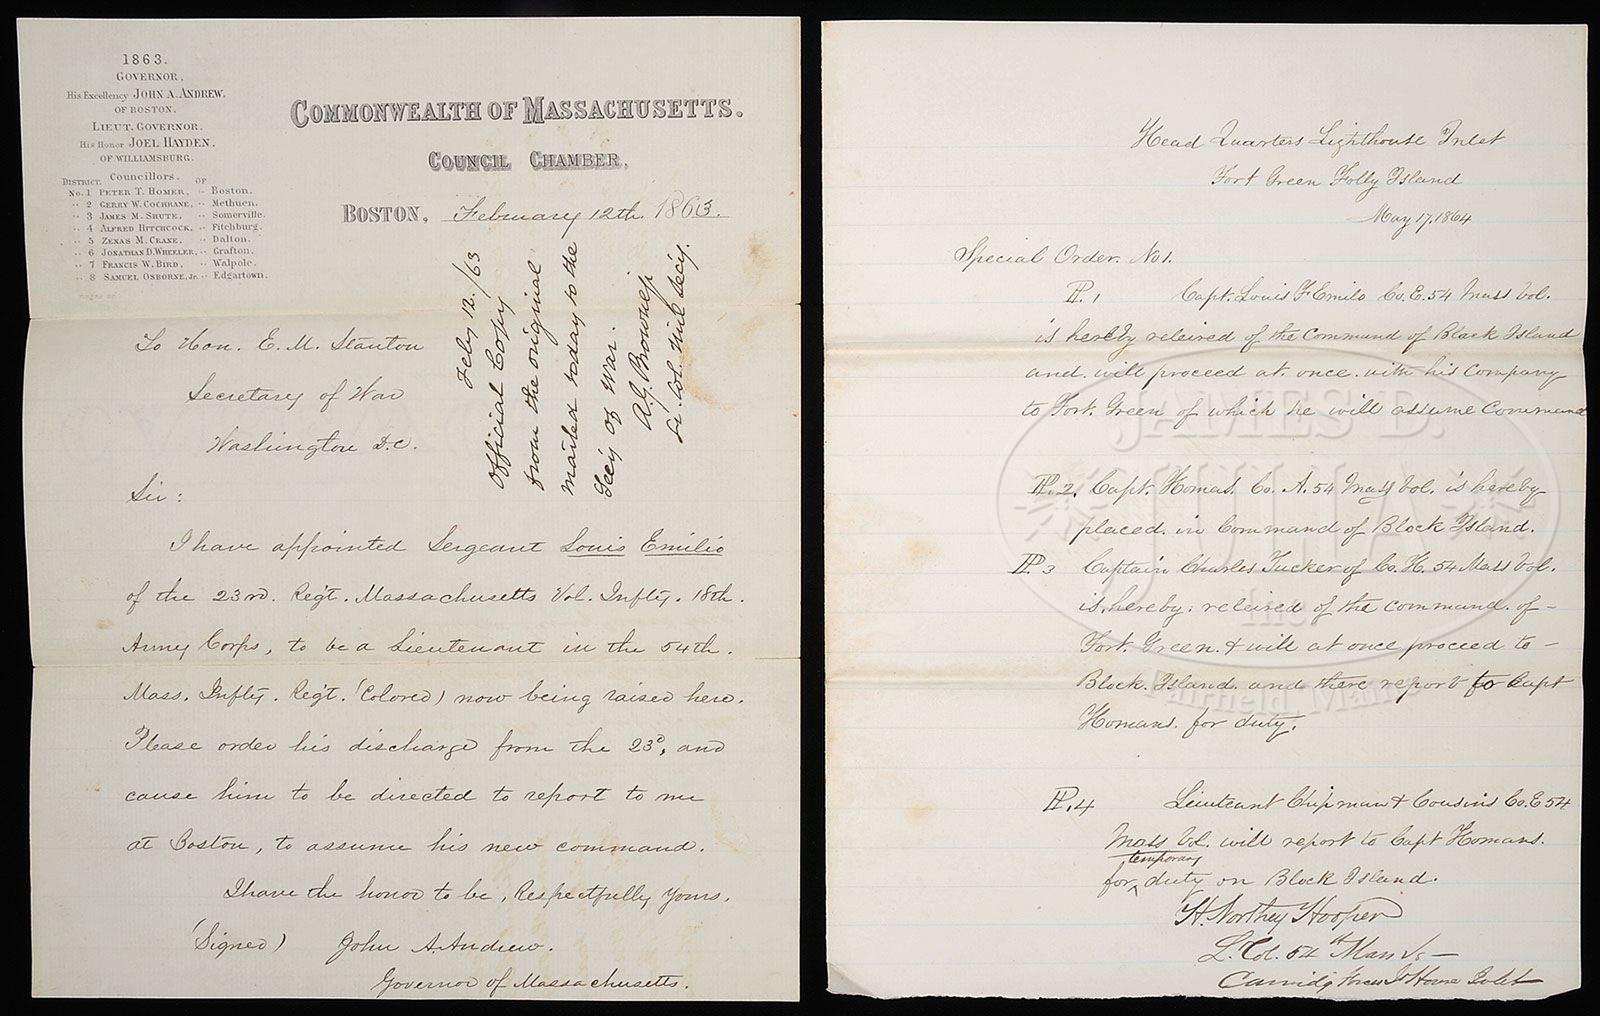 1863.
GOVERNOR,
His Excellency JOHN A. ANDREW.
OF BOSTON.
LIEUT. GOVERNOR.
His Honor JOEL HAYDEN.
OF WILLIAMSBURG.
Councillors.
DISTRICT. OF
No. 1 PETER T. HOMER, " Boston.
" 2 GERRY W. COCHRANE, " Methuen.
" 3 JAMES M. SHUTE, " Somerville.
" 4 ALFRED HITCHCOCK, " Fitchburg.
" 5 ZENAS M. CRANE, " Dalton.
" 6 JONATHAN D. WHEELER, " Grafton.
" 7 FRANCIS W. BIRD, " Walpole.
" 8 SAMUEL OSBORNE, Jr. " Edgartown.
COMMONWEALTH OF MASSACHUSETTS.
COUNCIL CHAMBER,
BOSTON, February 12th. 1863.
Feby 12./63
Official Copy
from the original
mailed today to the
Secy of War.
A.G. Browne Jr
Lt. Col. Mil. Secy.
To Hon. E. M. Stanton
Secretary of War
Washington D.C.
Sir:
I have appointed Sergeant Louis Emilio
of the 23rd. Regt. Massachusetts Vol. Inftry. 18th.
Army Corps, to be a Lieutenant in the 54th.
Mass. Inftry. Regt. (Colored) now being raised here.
Please order his discharge from the 23d, and
cause him to be directed to report to me
at Boston, to assume his new command.
I have the honor to be, Respectfully Yours,
(Signed) John A. Andrew.
Governor of Massachusetts.
Head Quarters Lighthouse Inlet
Fort Green Folly Island
May 17, 1864
Special Order. No 1.
P. 1 Capt. Louis F Emilo Co. E. 54 Mass Vol.
is hereby releived of the Command of Black Island
and. will proceed at. once. with his Company
to Fort. Green of which he will assume Command
P. 2. Capt. Homas. Co. A. 54 Mass Vol. is hereby
placed. in Command of Block Island.
P 3 Captain Charles Tucker of Co. H. 54 Mass Vol.
is. hereby. releived of the command. of -
Fort. Green. & will at once proceed to -
Block. Island. and there report to Capt
Homans. for duty.
P. 4 Lieuteant Chipman & Cousins Co. E 54
Mass Vol. will report to Capt Homans.
temporary
for duty on Block Island.
H. Northey Hooper
L. Col. 54th Mass Vs -
JAMES D.
JULIA
Inc.
Fairfield, Maine